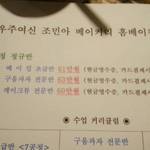 우주여신 조민아 베이커리 홈베이
정 정규반
베 이 킹 초급반 61만원 (현금영수증, 카드결제시
구움과자 전문반 63만원 (현금영수증, 카드결제시
케이크류 전문반 60만원 (현금영수증, 카드결제
◎ 수업 커리큘럼 ◎
급반 <7공정>
구움과자 전문반